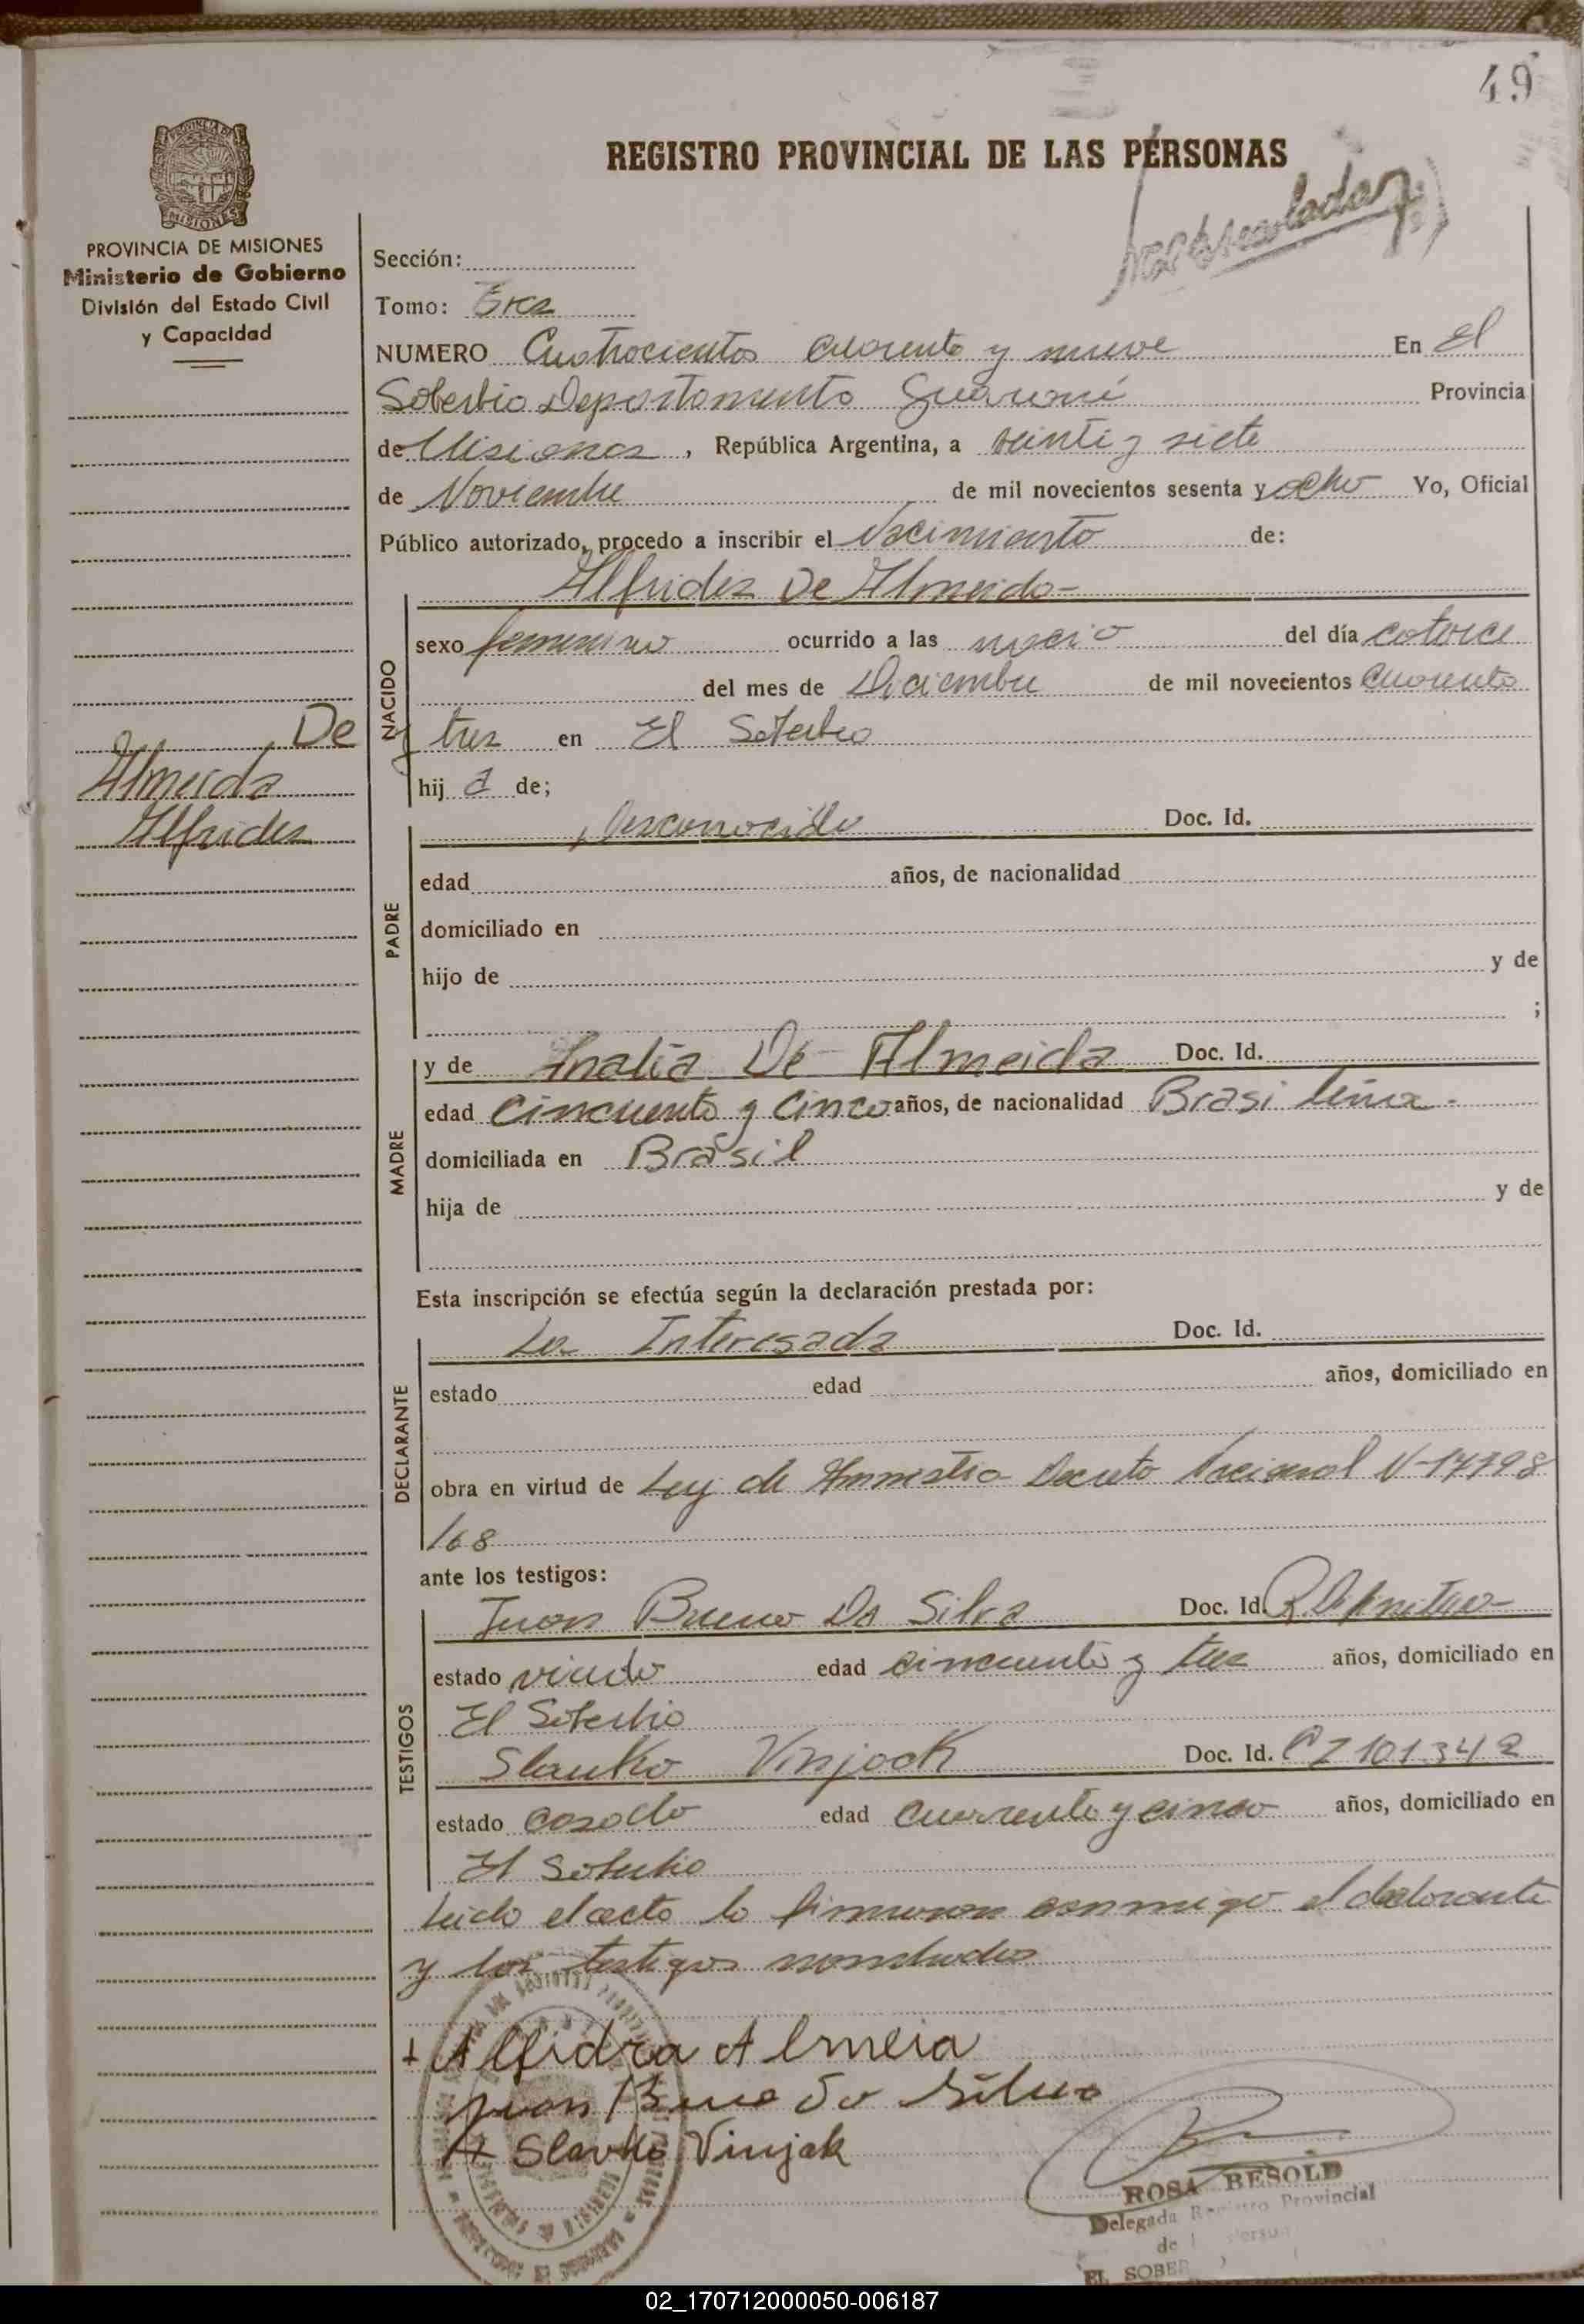 49
REGISTRO PROVINCIAL DE LAS PERSONAS
PROVINCIA DE MISIONES
Ministerio de Gobierno
División del Estado Civil
y Capacidad
De
Almeida
Alfrides
Sección:
Tomo: Tres
NUMERO Cuatrocientos cuarenta y nueve En El
Soberbio Departamento Guaraní Provincia
de Misiones, República Argentina, a veinti y siete
de Noviembre de mil novecientos sesenta y ocho Yo, Oficial
Público autorizado, procedo a inscribir el Nacimiento de:
Alfrides De Almeida-
NACIDO
sexo femenino ocurrido a las del día catorce
del mes de Diciembre de mil novecientos cuarenta
y tres en El Soberbio
hij a de;
PADRE
Desconocido Doc. Id.
edad años, de nacionalidad
domiciliado en
hijo de y de
;
MADRE
y de Analia De Almeida Doc. Id.
edad cincuenta y cinco años, de nacionalidad Brasileña-
domiciliada en Brasil
hija de y de
Esta inscripción se efectúa según la declaración prestada por:
DECLARANTE
La Interesada Doc. Id.
estado edad años, domiciliado en
obra en virtud de Ley de Amnistia Decreto Nacional N-17798
/68
ante los testigos:
TESTIGOS
Juan Bueno Da Silva Doc. Id.
estado viudo edad cincuenta y tres años, domiciliado en
El Soberbio
Slavko Vinjack Doc. Id. 7101342
estado casado edad cuarenta y cinco años, domiciliado en
El Soberbio
Leido el acto lo firmaron conmigo el declarante
y los testigos nombrados
+ Alfidra Almeia
Juan Bueno Do Silva
Slavko Vinjak
ROSA BESOLD
Delegada Registro Provincial
de
EL SOBER
02_170712000050-006187